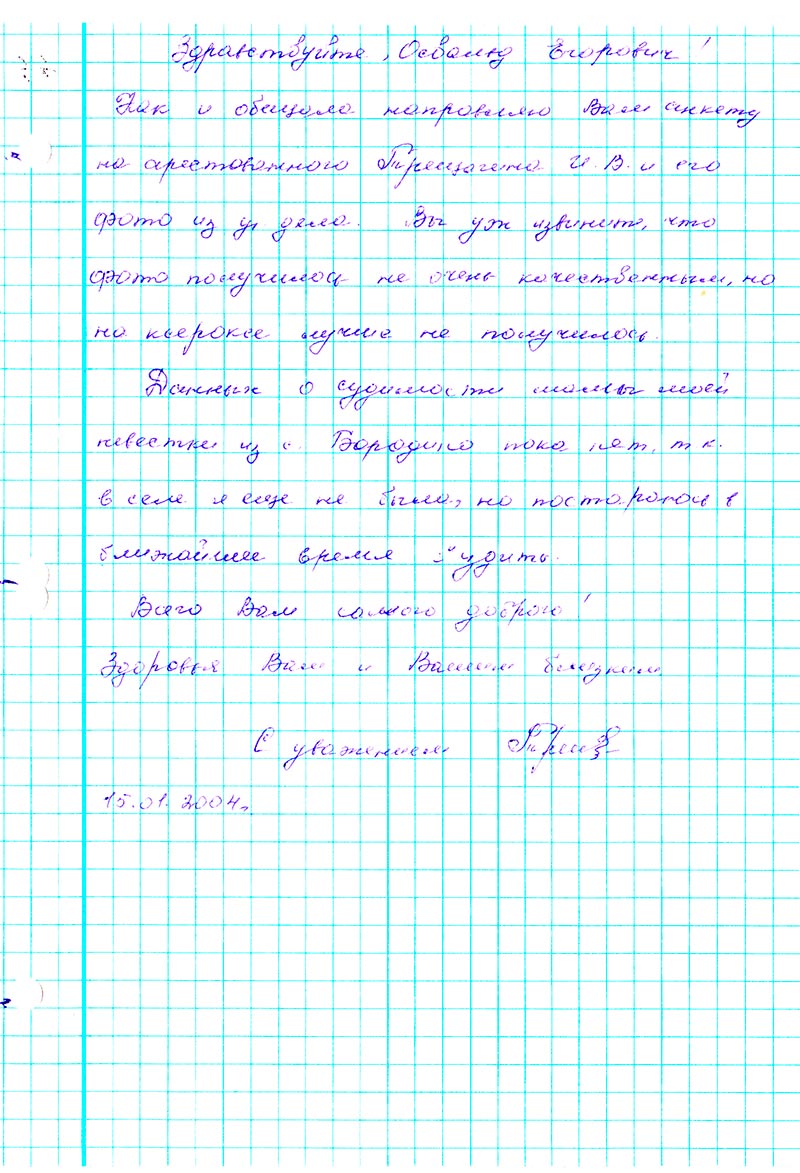 Здравствуйте, Освальд Егорович!
Как и обещала направляю Вам анкету
на арестованного И.В. и его
фото из уг дела. Вы уж извините, что
фото получилось не очень качественным, но
на ксероксе лучше не получилось.
Данных о судимости мамы моей
невестки из с. Бородино пока нет, т.к.
в селе я еще не была, но постараюсь в
ближайшее время съездить.
Всего Вам самого доброго!
Здоровья Вам и Вашим близким.
С уважением
15.01.2004г.